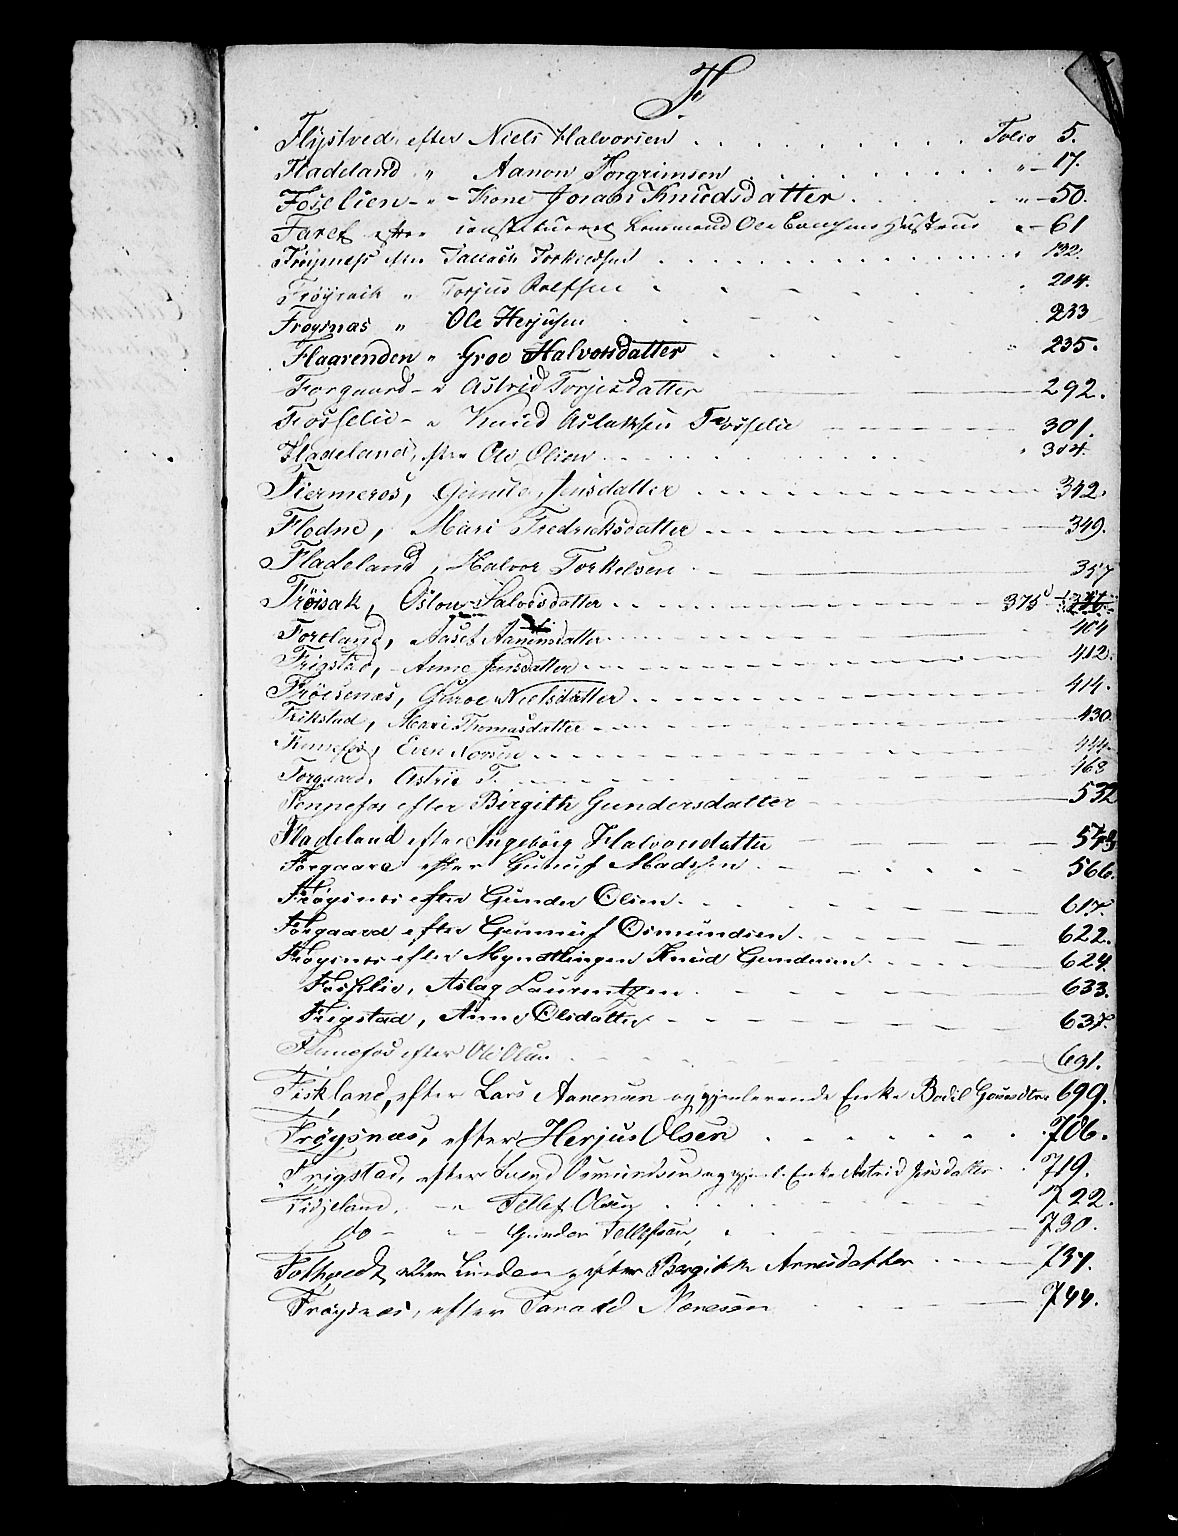 F.
Flystved, efter Niels Halvorsen . . . . . . . . . . Folio 5.
Fladeland " Aanon Torgrimsen . . . . . . . . . " - 17.
Foselien - " - Kone Joran Knudsdatter . . . . " - 50.
Faret efter constitueret Lensmand Ole Hustrue " - 61
Frøysnæs efter Tallach Torkildsen . . . . . . . . . . " 132.
Frøysaik " Torjus Rolfsen " - - - " 204.
Frøysnæs " Ole Herjusen . . . . 233
Flaarenden " Groe Halvorsdatter . . . . " 235.
Forgaard - " Astrid Torjesdatter 292.
Fosselie - " Knud Aslaksen Fosselie - - - - 301.
Fladeland, efter Ole Olsen . . . . . . . . " 304.
Fiermeros, Gunild Jensdatter - - - - - - 342.
Flodne, Mari Fredriksdatter - - - - - - 349.
Fladeland, Halvor Torkelsen - - - 357
Frøisak, Oslou Salvesdatter . . - - - - - 375
Foreland, Aaset Aanensdatter - - - - - 404
Frigstad, Anne Jensdatter - - - - - 412.
Frøisenæs, Guroe Nielsdatter - - - - - 414.
Frikstad, Mari Thomasdatter - - - - - 430.
Fennefos, Even - - - - - 444.
Forgaard, Astrie T. - - - - - 468
Fennefos efter Birgith Gundersdatter - - - 532
Fladeland efter Ingeborg Halvorsdatter - - -
Forgaard efter Gunuf Madssen - - . . . 566.
Frøysnes efter Gunder Olsen - - - - - 617.
Forgaard efter Gunnuf Osmundsen . - - - - 622.
Frøysnes efter Myndtlingen Knud Gundersen . - - - 624.
Fosselie, Aslag Laurentzen . - - - - 633.
Frigstad, Anne Olsdatter - - - - - 637.
Fennefos efter Ole Olsen . - - - - - 691.
Fiskland, efter Lars Aanensen og gjenlevende Enke Bodil 699.
Frøysnæs, efter Herjus Olsen . . . . . . . 706.
Frigstad, efter Svend Osmundsen og gjenl. Enke Astrid Jensdatter . . 719.
Fidjeland, - " Tellef Olsen . . . . . . . 722.
do - " - Gunder Tellefsen, . - - - - 730.
Fothvedt eller Lunden, efter Bergitte Arnesdatter . . . . 737.
Frøysnæs, efter Tarald Næresen . . . - - 744.